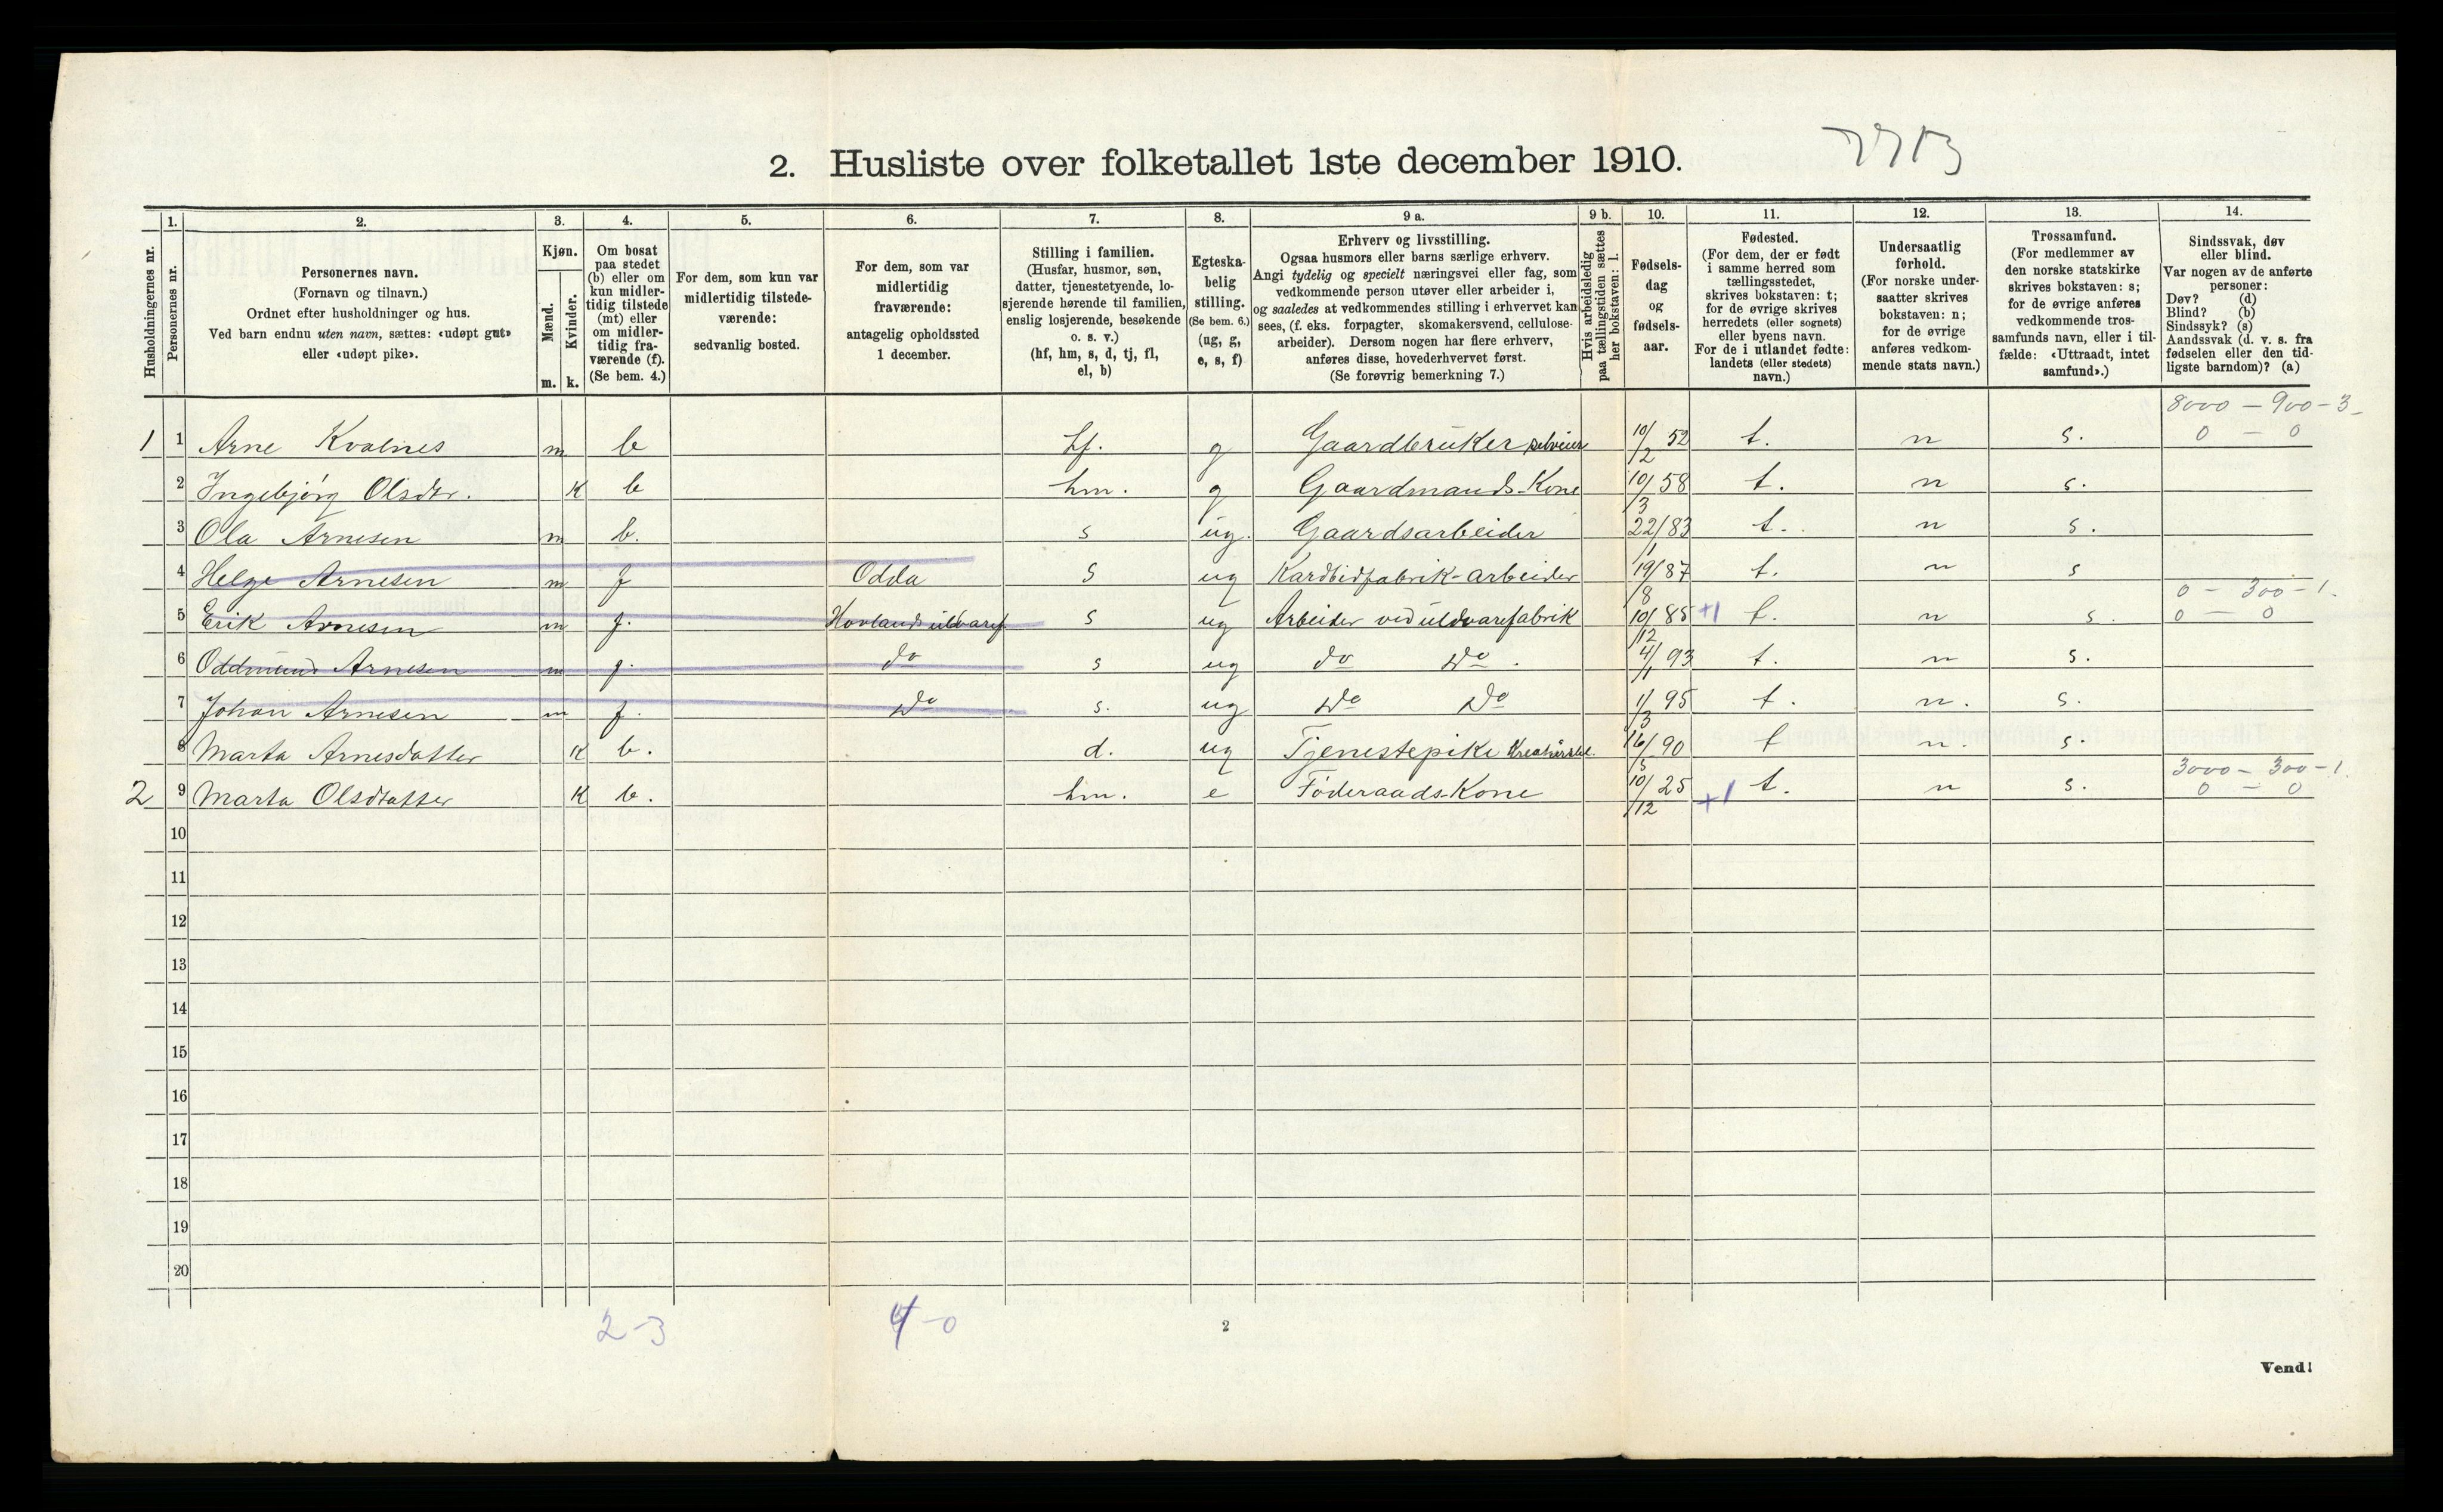 2. Husliste over folketallet 1ste december 1910.
1. 2. 3. 4. 5. 6. 7. 8. 9 a. 9 b. 10. 11. 12. 13. 14.
Husholdningernes nr.
Personernes nr.
Personernes navn.
(Fornavn og tilnavn.)
Ordnet efter husholdninger og hus.
Ved barn endnu uten navn, sættes: «udøpt gut»
eller «udøpt pike».
Kjøn.
Mænd.
Kvinder.
m. k.
Om bosat
paa stedet
(b) eller om
kun midler-
tidig tilstede
(mt) eller
om midler-
tidig fra-
værende (f).
(Se bem. 4.)
For dem, som kun var
midlertidig tilstede-
værende:
sedvanlig bosted.
For dem, som var
midlertidig
fraværende:
antagelig opholdssted
1 december.
Stilling i familien.
(Husfar, husmor, søn,
datter, tjenestetyende, lo-
sjerende hørende til familien,
enslig losjerende, besøkende
o. s. v.)
(hf, hm, s, d, tj, fl,
el, b)
Egteska-
belig
stilling.
(Se bem. 6.)
(ug, g,
e, s, f)
Erhverv og livsstilling.
Ogsaa husmors eller barns særlige erhverv.
Angi tydelig og specielt næringsvei eller fag, som
vedkommende person utøver eller arbeider i,
og saaledes at vedkommendes stilling i erhvervet kan
sees, (f. eks. forpagter, skomakersvend, cellulose-
arbeider). Dersom nogen har flere erhverv,
anføres disse, hovederhvervet først.
(Se forøvrig bemerkning 7.)
Hvis arbeidsledig
paa tællingstiden sættes
her bokstaven: l.
Fødsels-
dag
og
fødsels-
aar.
Fødested.
(For dem, der er født
i samme herred som
tællingsstedet,
skrives bokstaven: t;
for de øvrige skrives
herredets (eller sognets)
eller byens navn.
For de i utlandet fødte:
landets (eller stedets)
navn.)
Undersaatlig
forhold.
(For norske under-
saatter skrives
bokstaven: n;
for de øvrige
anføres vedkom-
mende stats navn.)
Trossamfund.
(For medlemmer av
den norske statskirke
skrives bokstaven: s;
for de øvrige anføres
vedkommende tros-
samfunds navn, eller i til-
fælde: «Uttraadt, intet
samfund».)
Sindssvak, døv
eller blind.
Var nogen av de anførte
personer:
Døv? (d)
Blind? (b)
Sindssyk? (s)
Aandssvak (d. v. s. fra
fødselen eller den tid-
ligste barndom)? (a)
8000 - 900 - 3
1 1 Arne Kvalnes m b hf. g Gaardbruker selveier 10/2 52 t. n s. 0 - 0
2 Ingebjørg Olsdtr. K b hm. g Gaardmands-Kone 10/3 58 t. n s.
3 Ola Arnesen m b. s ug. Gaardsarbeider 22/1 83 t. n s.
4 Helge Arnesen m f Odda s ug Kardbidfabrik-arbeider 19/8 87 t. n s
0 - 300 - 1.
5 Erik Arnesen m f. Hovlands uldvaref s ug Arbeider ved uldvarefabrik 10/12 85 +1 t. n s. 0 - 0
6 Oddmund Arnesen m f. do s ug do Do. 4/1 93 t. n s.
7 Johan Arnesen m f. Do s. ug Do Do 1/3 95 t. n. s.
8 Marta Arnesdatter K b. d. ug Tjenestepike Kreaturstel. 16/5 90 t n. s.
3000 - 300 - 1.
2 9 Marta Olsdtatter K b. hm. e Føderaads-Kone 10/12 25 +1 t. n s. 0 - 0
10
11
12
13
14
15
16
17
18
19
20
2-3 4-0
2
Vend!